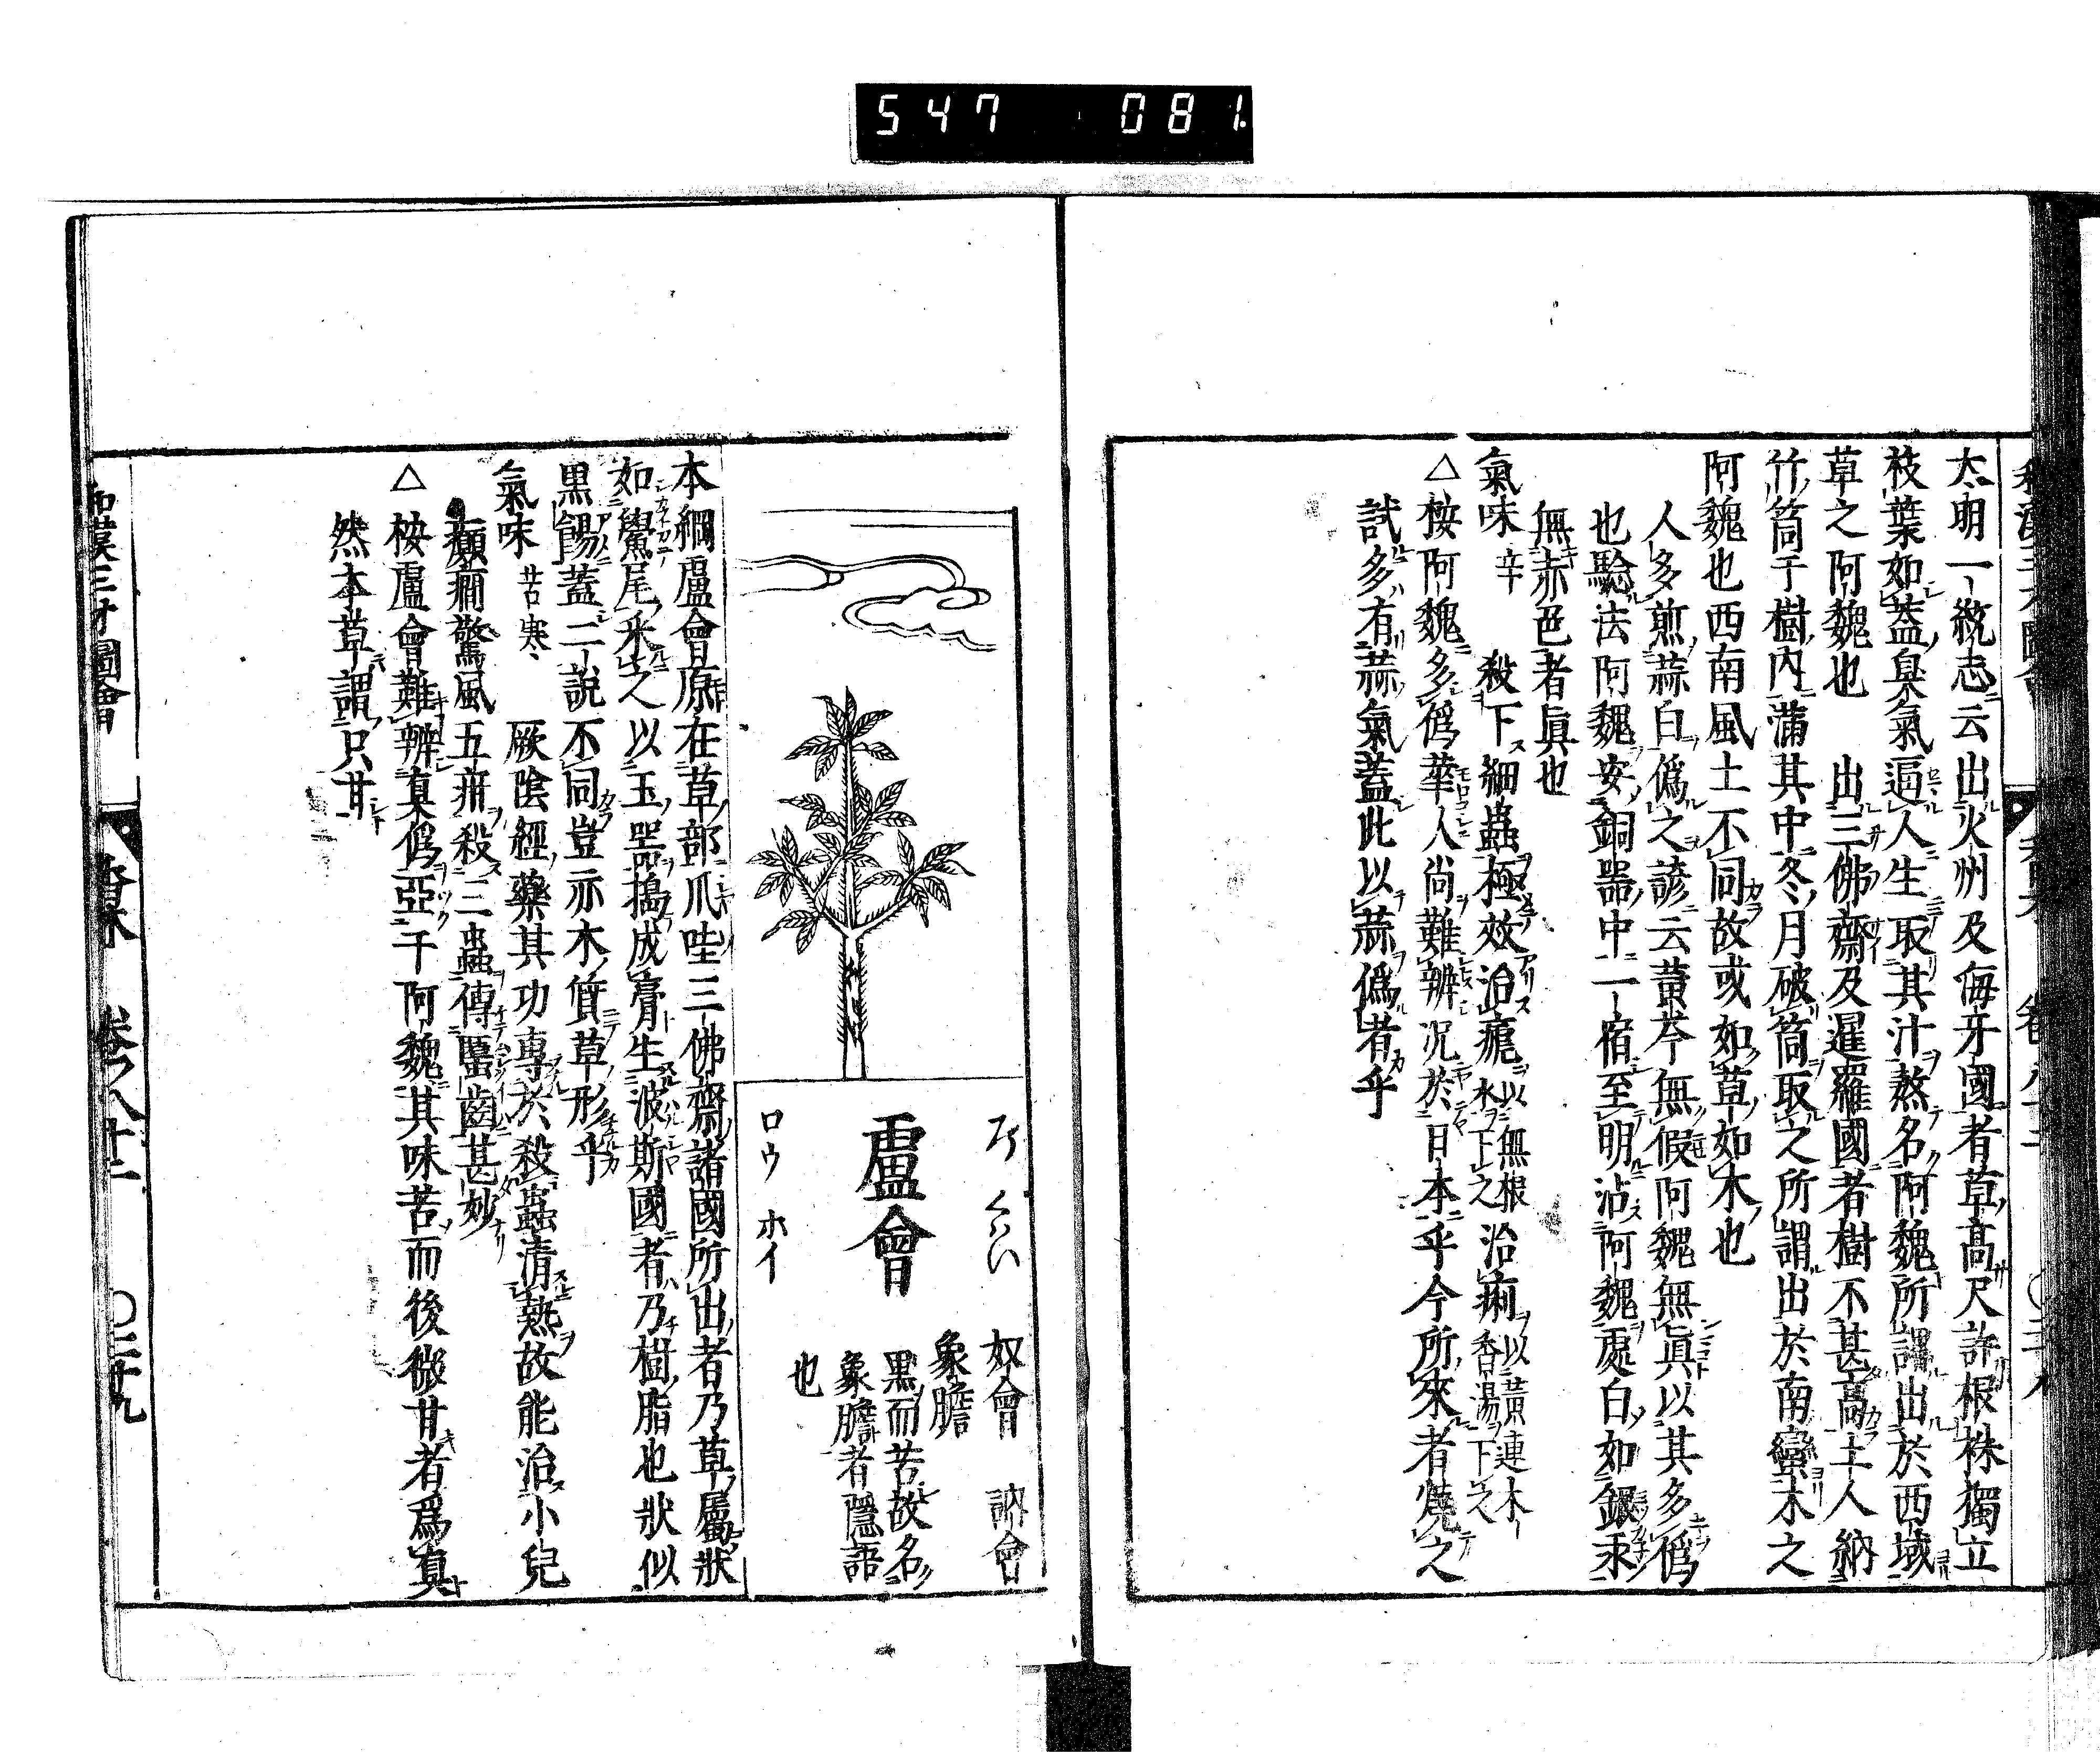 547 081
大明一統志云出火州及海牙國者草高尺許根株獨立
枝葉如蓋臭氣逼人生取其汁熬名阿魏所謂出於西域
草之阿魏也 出三佛齋及暹羅國者樹不甚高土人納
竹筒于樹內滿其中冬月破筒取之所謂出於南蠻木之
阿魏也西南風土不同故或如草如木也
人多煎蒜白僞之諺云黃芩無假阿魏無眞以其多僞
也驗法阿魏安銅器中一宿至明沾阿魏處白如銀汞
無赤色者眞也
氣味 辛 殺下細蟲極效治瘧以無根水下之治痢以黃連木香湯下之
△按阿魏多僞華人尚難辨況於日本乎今所來者燒之
試多有蒜氣蓋此以蒜僞者乎
ろくはい
盧會
ロウ ホイ
奴會 訥會
象膽
黒而苦故名
象膽者隱語
也
本綱盧會原在草部爪哇三佛齋諸國所出者乃草屬狀
如鱟尾采之以玉器搗成膏生波斯國者乃樹脂也狀似
黒餳蓋二說不同豈亦木質草形乎
氣味 苦寒 厥陰經藥其功專於殺蟲清熱故能治小兒
癲癇驚風五疳殺三蟲傳䘌齒甚妙
△按盧會難辨眞僞亞于阿魏其味苦而後微甘者爲眞
然本草謂只甘
和漢三才圖會 香木 卷八十二 〇三十九